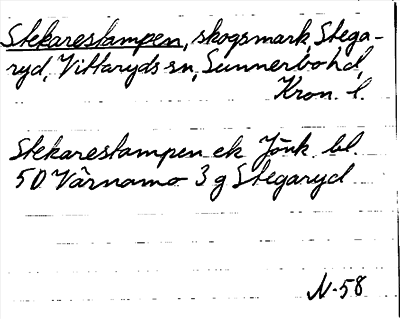 Stekarestampen, skogsmark, Stega-
ryd, Vittaryds sn, Sunnerbo hd,
Kron. l.
Stekarestampen ek Jönk. bl.
5D Värnamo 3 g Stegaryd
N-58